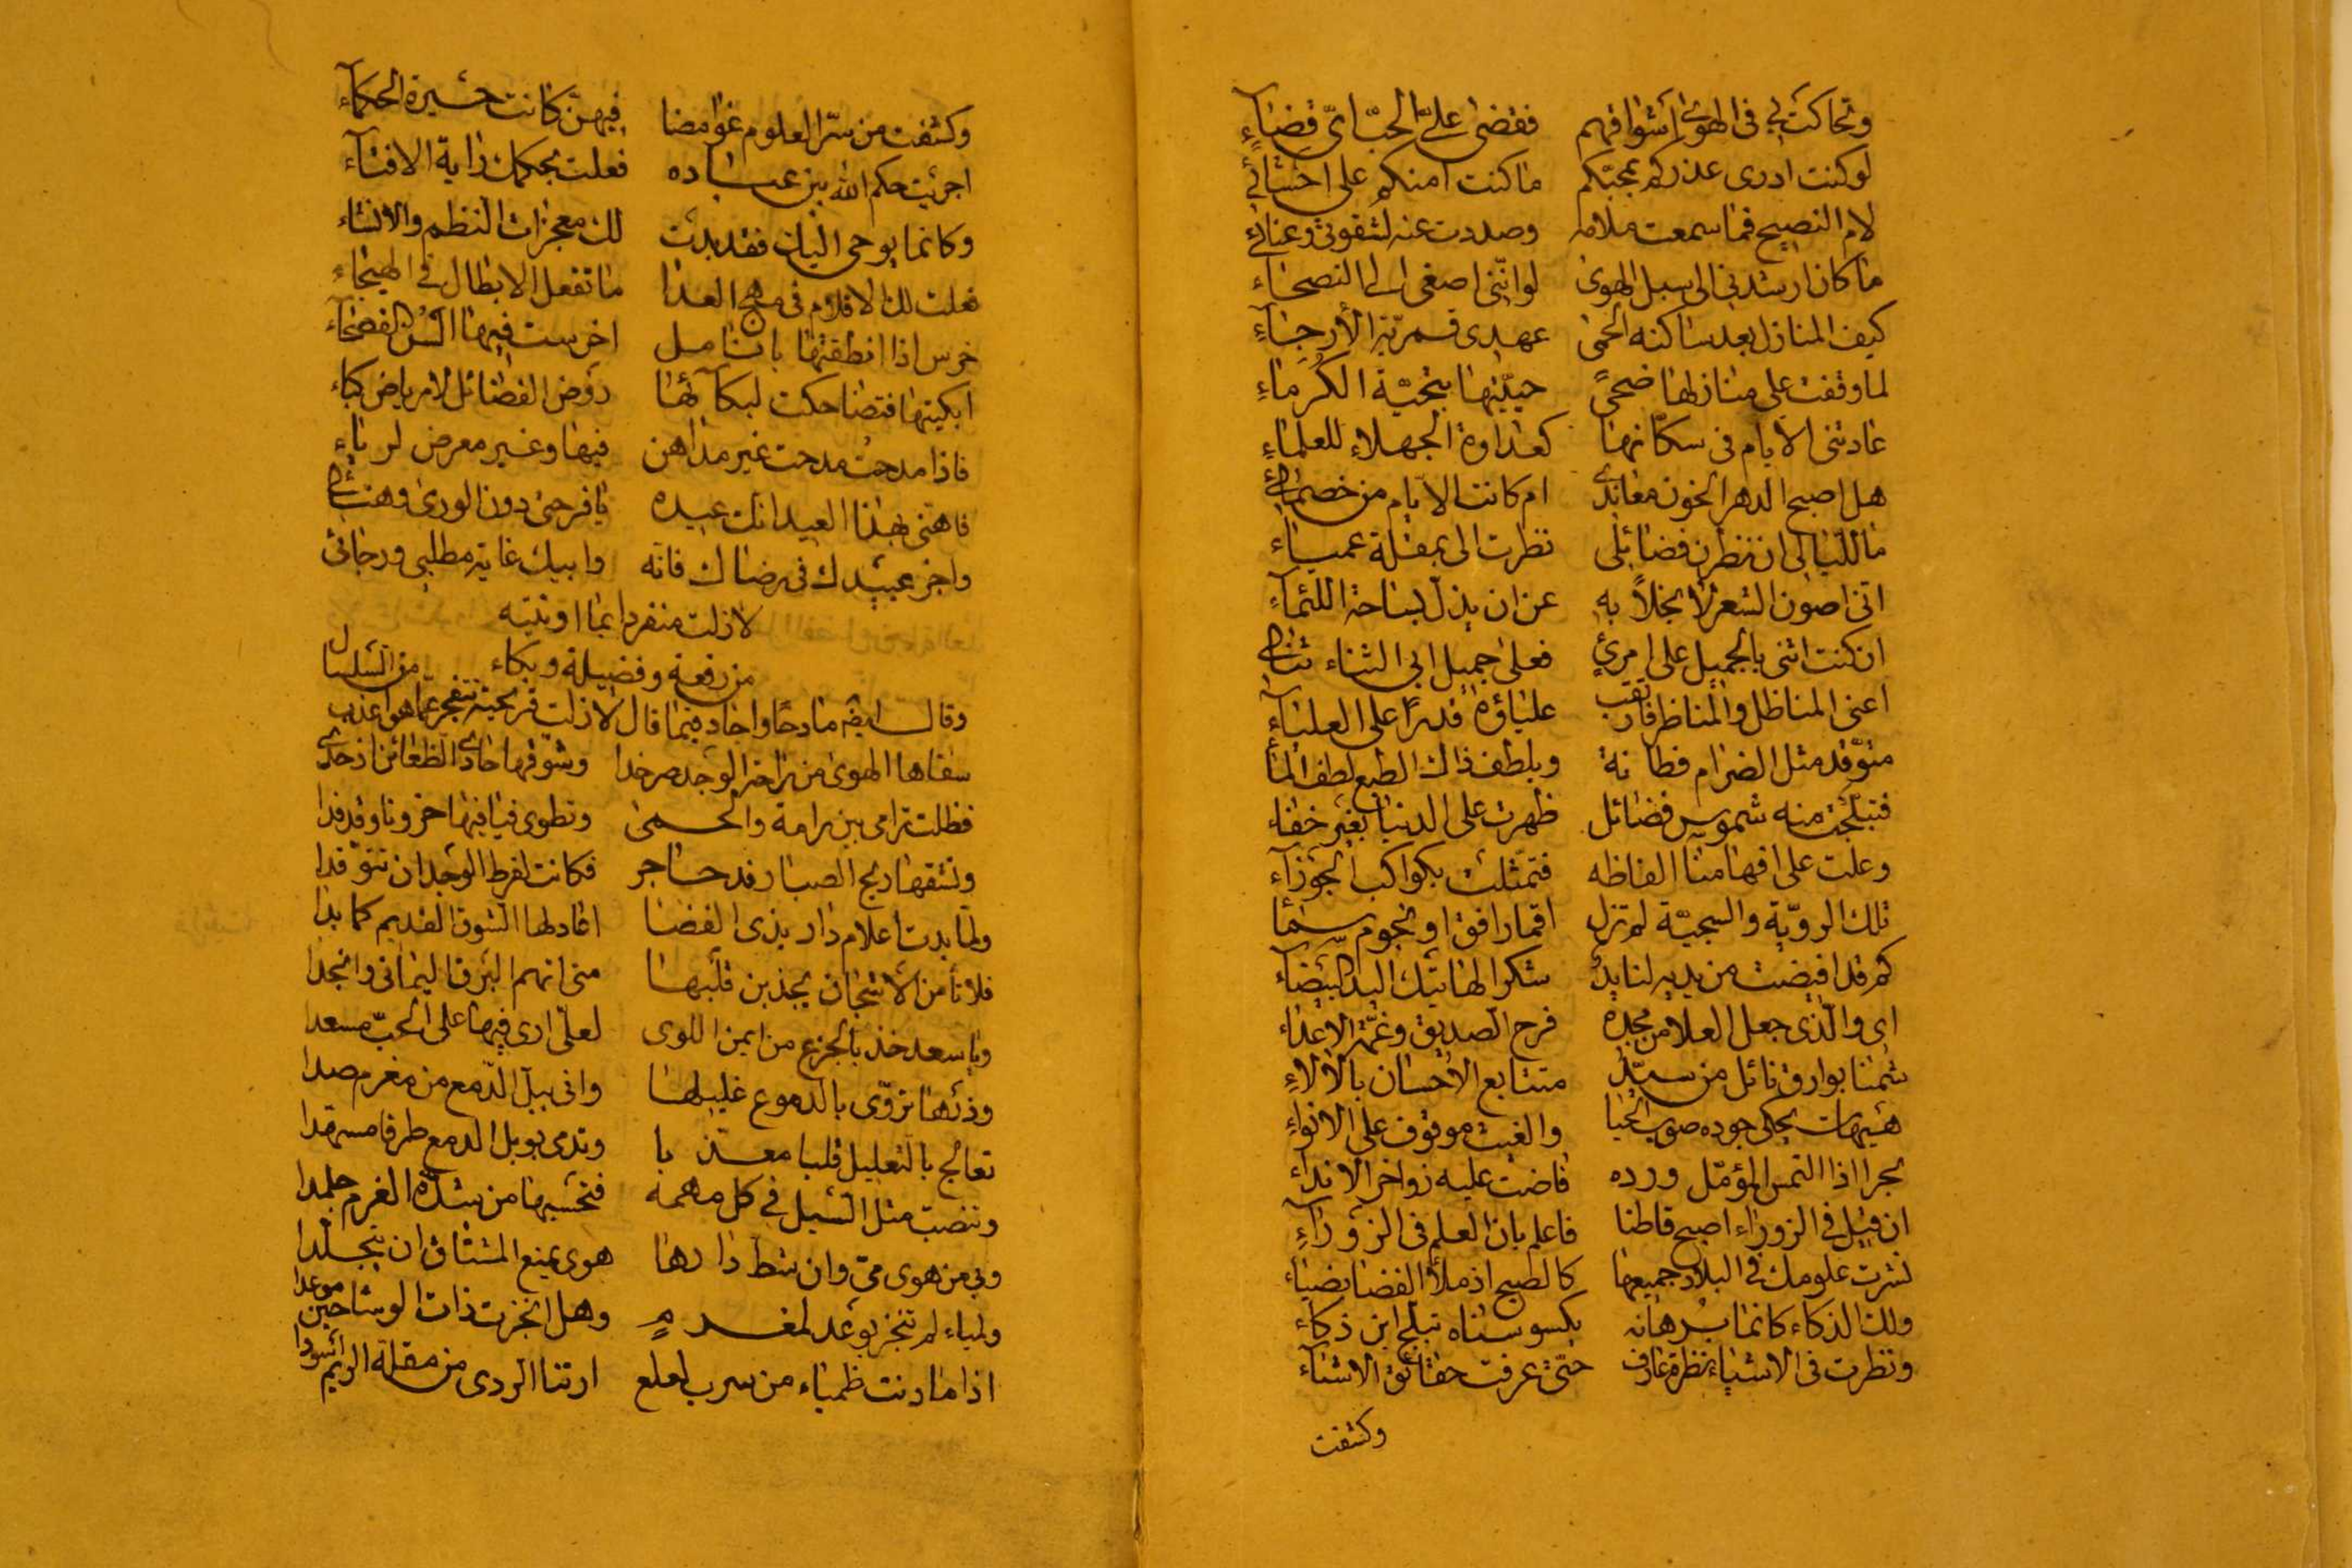 وتحاكت بي في الهوى اشواقهم فقضى علىّ الحبّ اىّ قضاءٍ
لو كنت ادرى عذركم بمحبتكم ما كنت آمنكم على احشائي
لام النصيح فما سمعت ملامه وصددت عنه لشقوتي وعنائي
ما كان ارشدني الى سبل الهوى لو انّني اصغى الى النصحاء
كيف المنازل بعد ساكنه الحمى عهدى قمريّة الأرجاءٍ
لما وقفت على منازلها ضحىً حيّيتها بتحيّة الكُرماءِ
عادتني الايام في سكّانها كعداوة الجهلاء للعلماءِ
هل اصبح الدهر الخون معاندي ام كانت الايام من خصمائي
ما للّيالي ان تنظرن فضائلى نظرت الى بمقلة عمياء
انى اصون الشعر لا بخلاً به عن ان يذلّ بساحة اللئماءِ
ان كنت اثنى بالجميل على امرئٍ فعلى جميل ابى الثناء ثنائي
اعنى المناظل والمناظر فارتقت علياؤه قدرًا على العلياءِ
متوّقد مثل الضرام فطانة وبلطف ذاك الطبع لطف الماءِ
فتبلّجت منه شموس فضائل ظهرت على الدنيا بغير خفاء
وعلت على افهامنا الفاظه فتمثّلت بكواكب الجوزآء
تلك الرويّة والسجيّة لم تزل اقمار افق او نجوم سماء
كم قد افيضت من يديه لنا يدٌ شكرا لهاتيك اليد البيضاء
اى والّذى جعل العلا من مجده فرح الصديق وغمّة الاعداء
شمنا بوارق نائل من سيّدٍ متتابع الاحسان بالآلاءِ
هيهات يحكى جوده صوب الحيا والغيث موقوف على الانواءِ
بحرا اذا التمس المؤمّل ورده فاضت عليه زواخر الانداء
ان قيل في الزوراء اصبح قاطنا فاعلم بان العلم في الزورآءِ
نشرت علومك في البلاد جميعها كالصبح اذ ملأ الفضا بضياء
ولك الذكاء كانما برهانه يكسو سناه تبلّج ابن ذكاء
ونظرت في الاشياء نظرة عارف حتّى عرفت حقائق الاشيآء
وكشفت
وكشفت من سرّ العلوم غوامضا فيهنّ كانت حسيرة الحكمآء
اجريت حكم الله بين عباده فعلت بحكمك راية الافتآء
وكانما يوحى اليك فقد بدت لك معجزات النظم والانشاء
فعلت لك الاقلام في مهج العدا ما تفعل الابطال في الهيجاءِ
خرس اذا انطقتها بانامل اخرست فيها السُن الفصحآء
ابكيتها فتضاحكت لبكآئها روض الفضائل لا رياض كباء
فاذا مدحتُ مدحت غير مداهن فيها وغير معرض لرياءِ
فاهنى بهذا العيد انك عيده يا فرحتى دون الورى وهنائي
واجز عبيدك في رضاك فانه وابيك غاية مطلبي ورجائي
لازلت منفردا بما اوتيته
من رفعة وفضيلة وبكاء
وقال ايضه مادحًا واجاد فيما قال لازالت قريحته تتفجر عما هو اعذب من السلسال
سقاها الهوى من راحة الوجد صرخدا وشوّقها حادى الظعائن اذ حدى
فظلت ترامى بين رامة والحمى وتطوى فيافيها حزونا وفدفدا
ونشقها ريح الصبا رند حاجر فكانت لفرط الوجد ان تتوّقدا
ولما بدت اعلام دار بذى الغضا اعاد لها الشوق القديم كما بدا
فلا تأمن الاشجان يجذبن قلبها متى اتهم البرق اليماني وانجدا
ويا سعد خذ بالجزع من ايمن اللوى لعلّى ارى فيها على الحبّ مسعدا
وذرها تروّى بالدموع غليلها وانى يبل الدّمع من مغرم صدا
تعالج بالتعليل قلبا معذبا وتدمى بوبل الدمع طرفا مسهدا
وتنصبّ مثل السّيل في كل مهمه فتحسبها من شدّة الغرم جلمدا
وبي من هوى ميّ وان شطّ دارها هوى يمنع المشتاق ان يتجلّدا
ولمياء لم تنجز بوعد لمغرمٍ وهل انجزت ذات الوشاحين موعدا
اذا ما رنت ظمياء من سرب لعلع ارتنا الردى من مقلة الريم اسودا